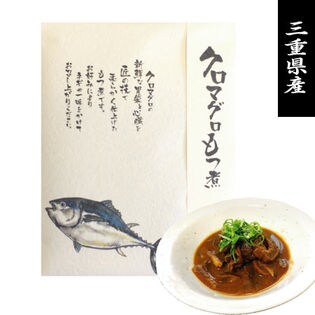 三重県産
クロマグロもつ煮
クロマグロの
新鮮な胃袋と心臓を
匠の技で
柔らかく仕上げた
もつ煮です。
お好みにより
お召し上がりください。